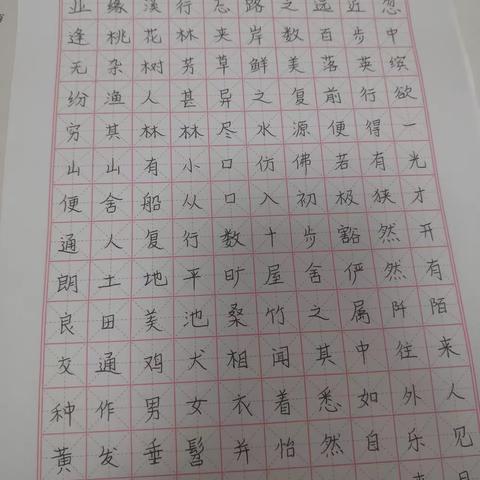 业缘溪行忘路之远近忽
逢桃花林夹岸数百步中
无杂树芳草鲜美落英缤
纷渔人甚异之复前行欲
穷其林林尽水源便得一
山山有小口仿佛若有光
便舍船从口入初极狭才
通人复行数十步豁然开
朗土地平旷屋舍俨然有
良田美池桑竹之属阡陌
交通鸡犬相闻其中往来
种作男女衣着悉如外人
黄发垂髫并怡然自乐见